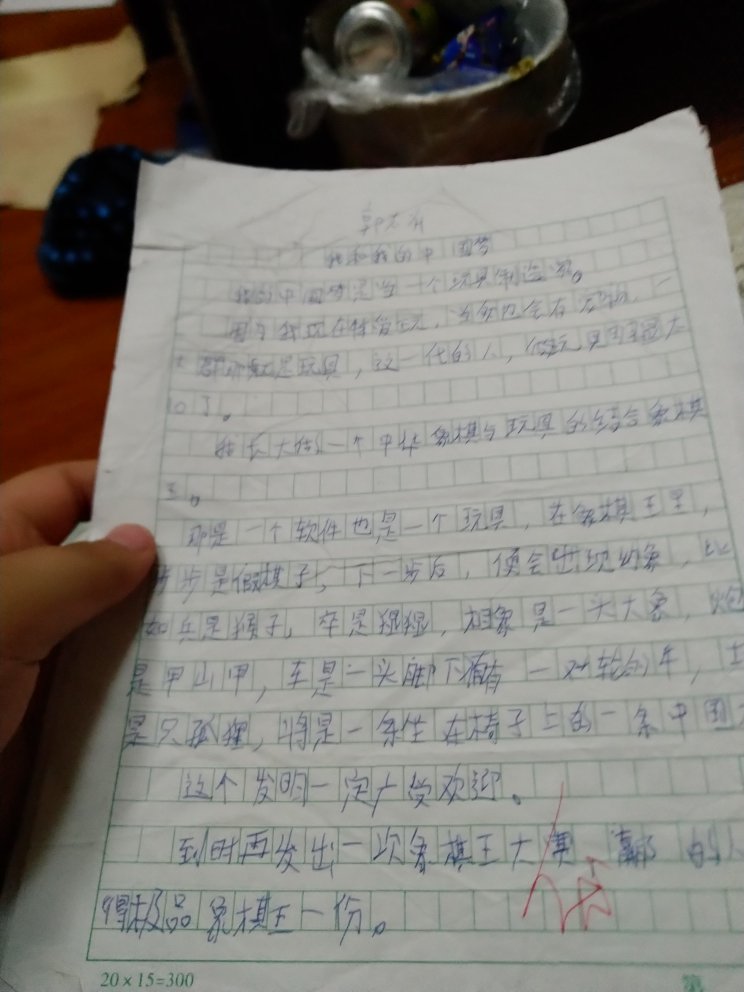 我和我的中国梦
我的中国梦是当一个玩具制造家。
因为我现在特爱玩,当然也会有发明,一
就是玩具,这一代的人,做玩具因主题太
了。
我长大的一个中华象棋与玩具的结合象棋
王。
那是一个软件也是一个玩具,在象棋王里,
步是假棋子,下一步后,便会出现幻象,比
如兵是猴子,卒是猩猩,相象是一头大象,炮
是甲山甲,车是一头脚下有一对轮的牛,士
是只狐狸,将是一条坐在椅子上的一条中国
这个发明一定广受欢迎。
到时再发出一次象棋王大赛 的人
得极品象棋王一份。
20×15=300
第